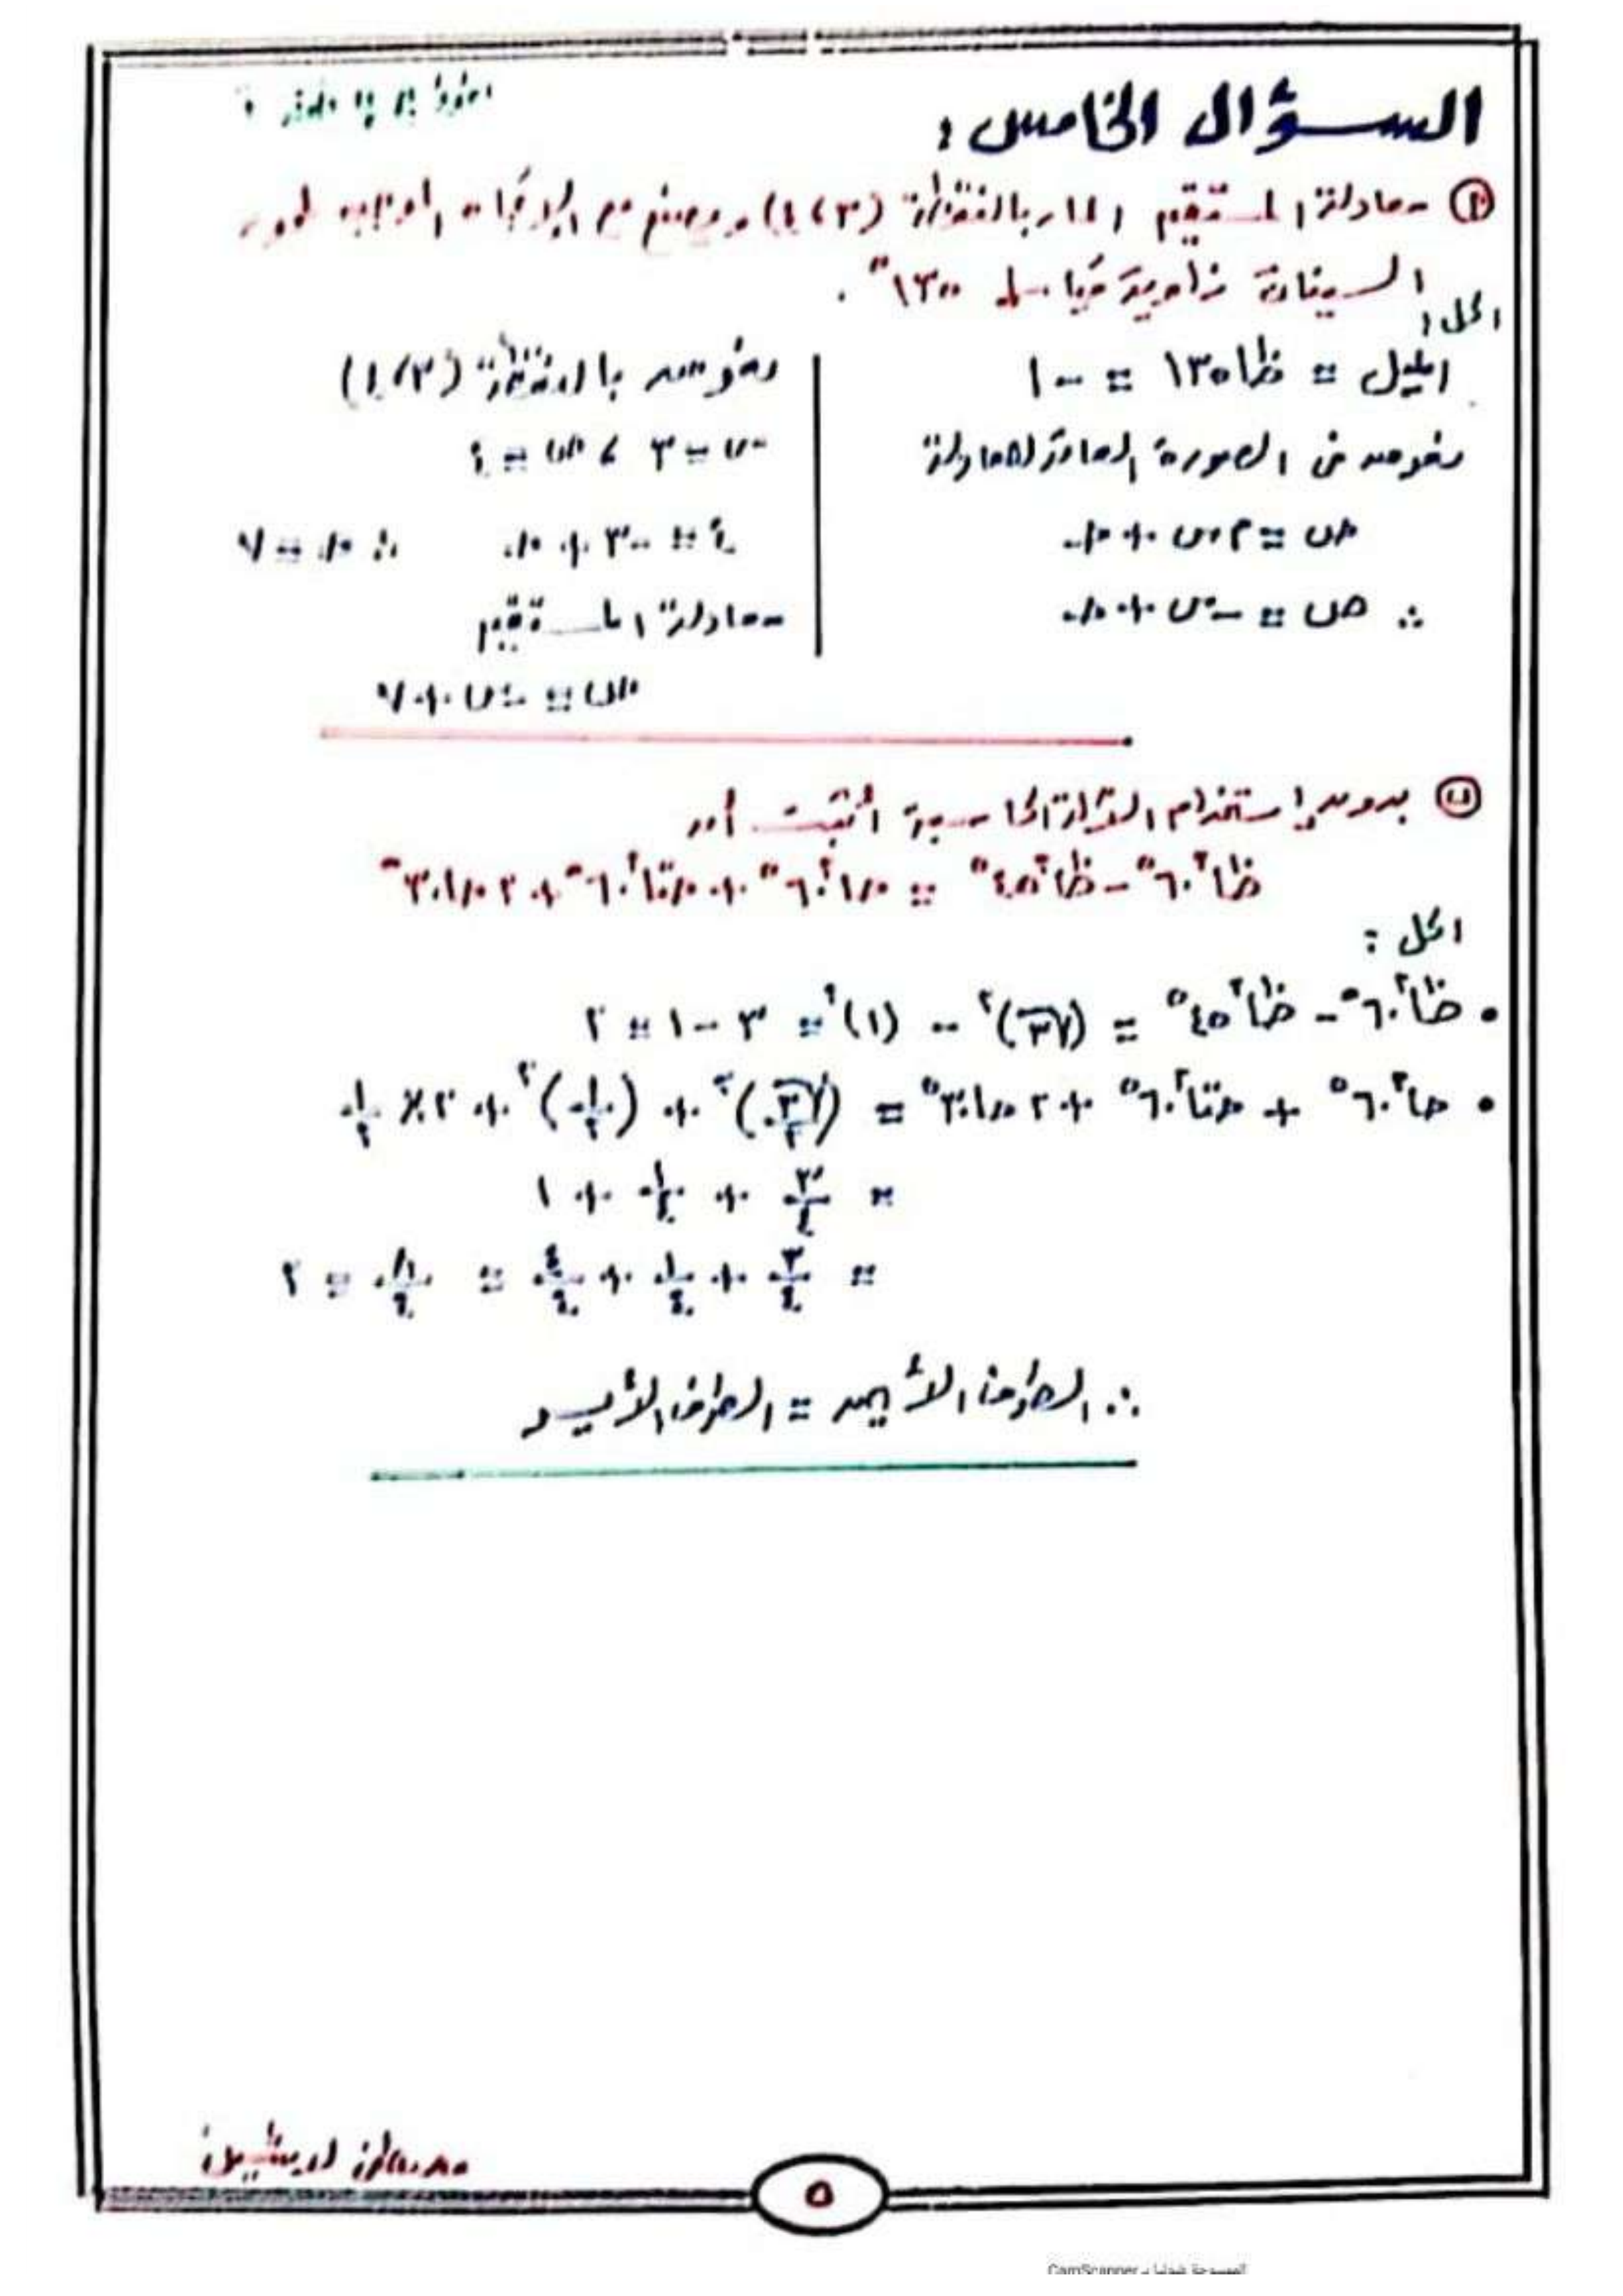 السؤال الخامس :
(أ) معادلة المستقيم المار بالنقطة (٣،٤) ويصنع مع الاتجاه الموجب لمحور
السينات زاوية قياسها ١٣٥°.
الحل :
الميل = ظا ١٣٥ = -١
نعوض في الصورة العامة للمعادلة
ص = م س + جـ
∴ ص = -س + جـ
نعوض بالنقطة (٣،٤)
س = ٣ ، ص = ٤
٤ = -٣ + جـ ∴ جـ = ٧
معادلة المستقيم
ص = -س + ٧
(ب) بدون استخدام الآلة الحاسبة أثبت أن
ظا²٦٠° - ظا²٤٥° = حا²٦٠° + حتا²٦٠° + ٢ حا ٣٠°
الحل :
• ظا²٦٠° - ظا²٤٥° = (√٣)² - (١)² = ٣ - ١ = ٢
• حا²٦٠° + حتا²٦٠° + ٢ حا ٣٠° = (√٣/٢)² + (١/٢)² + ٢ × ١/٢
= ٣/٤ + ١/٤ + ١
= ٣/٤ + ١/٤ + ٤/٤ = ٨/٤ = ٢
∴ الطرف الأيمن = الطرف الأيسر
٥
الممسوحة ضوئيا بـ CamScanner